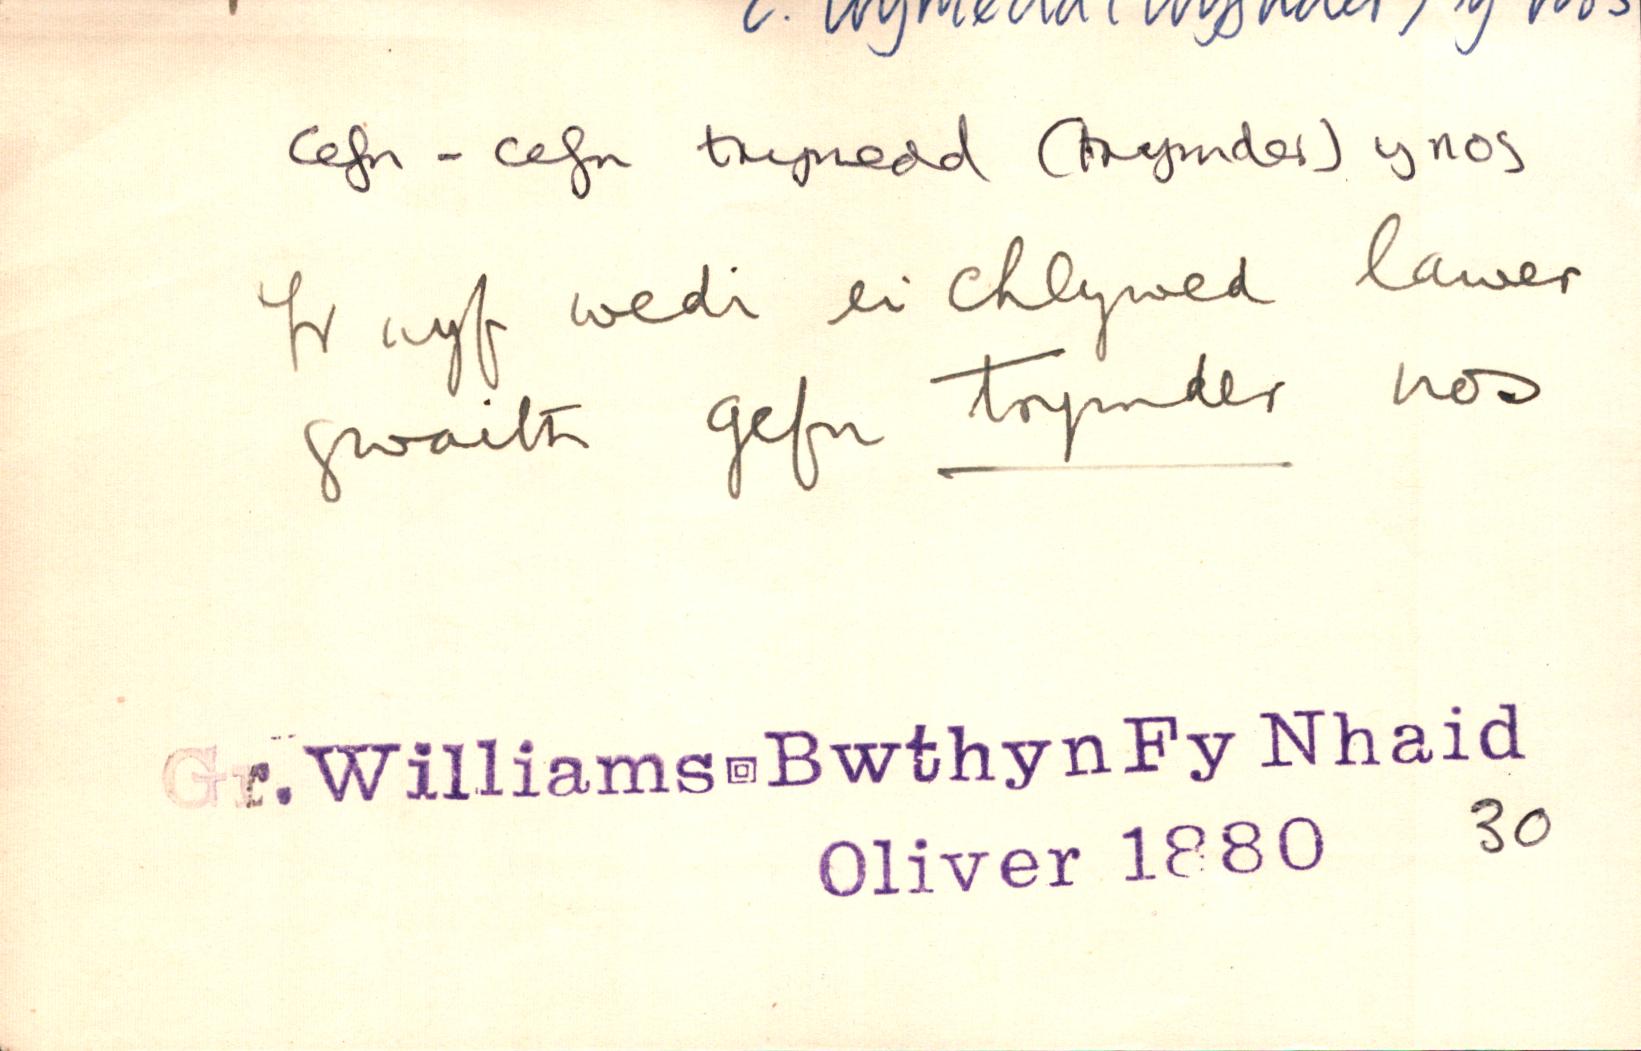 c. trymedd (trymder) y nos
cefn - cefn trymedd (trymder) y nos
Yr wyf wedi ei chlywed lawer
gwaith gefn trymder nos
Gr. Williams Bwthyn Fy Nhaid
Oliver 1880 30